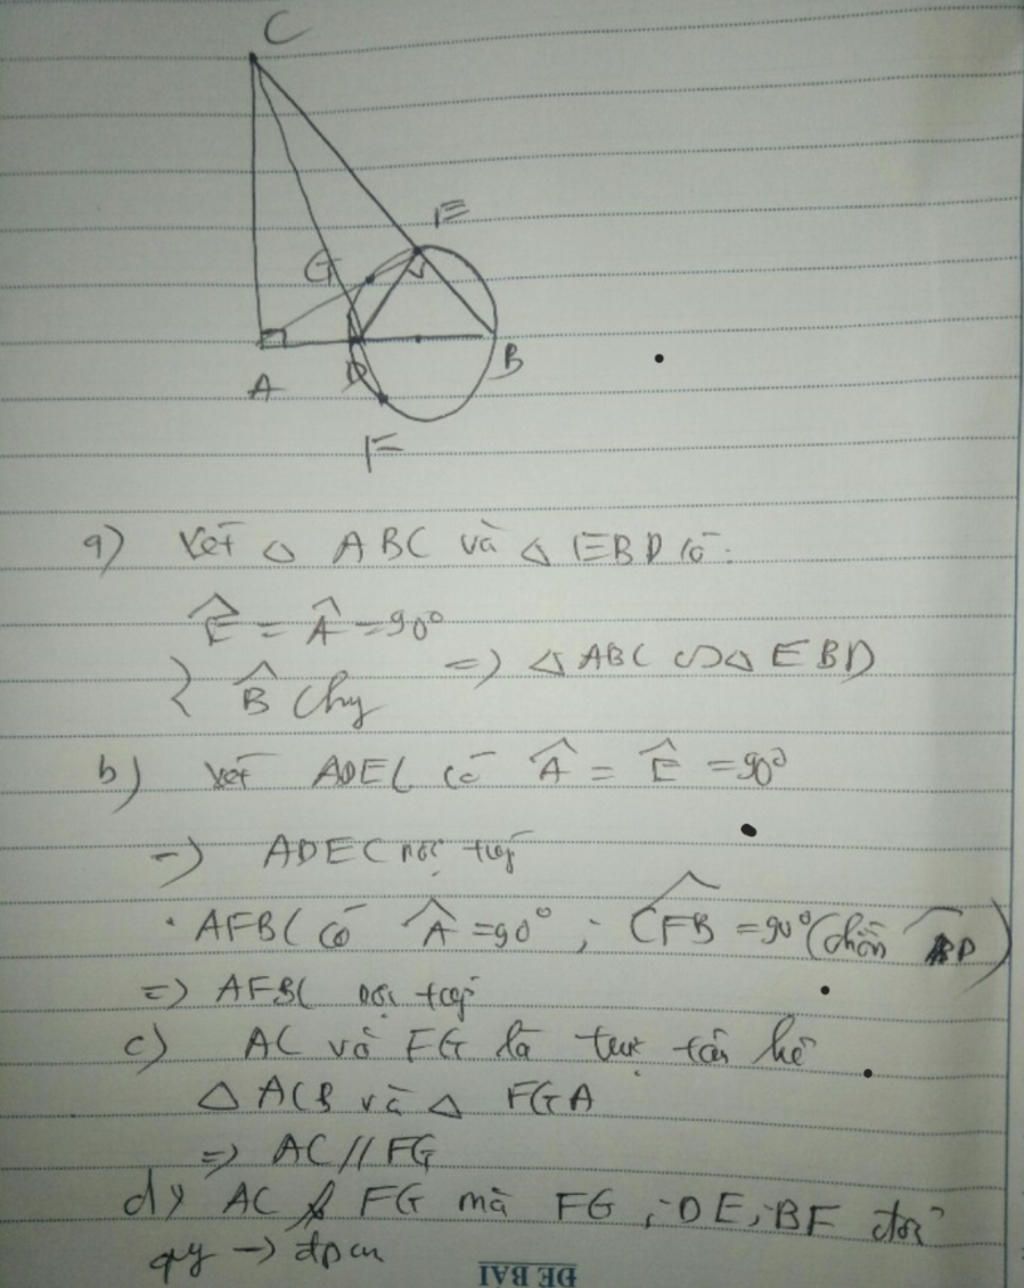 C
E
G
A
D
B
F
a) Xét △ ABC và △ EBD có:
Ê = Â = 90°
B̂ chg
=> △ ABC ∽ △ EBD
b) Xét ADEC có Â = Ê = 90°
-> ADEC nội tiếp
· AFBC có Â = 90° ; CFB = 90° (chắn BD)
=> AFBC nội tiếp
c) AC và FG là
△ ACB và △ FGA
=> AC // FG
d) AC FG mà FG ; DE ; BF đồng
quy -> đpcm
ĐỀ BÀI